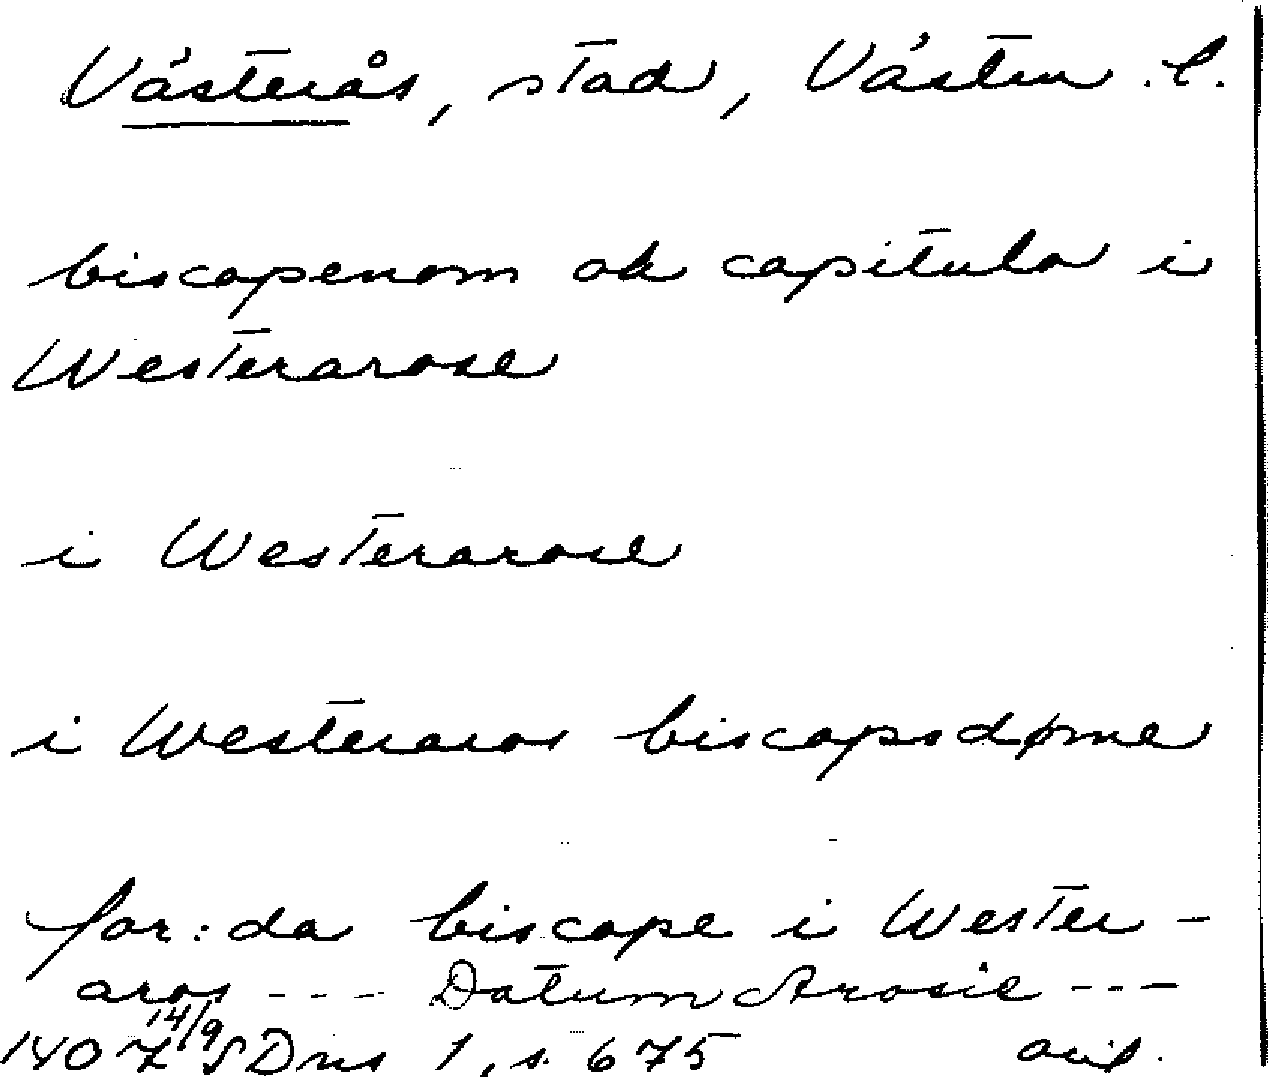 Västerås, stad, Västm. l.
biscopenom ok capitulo i
Westerarose
i Westerarose
i Westeraros biscopsdøme
for:da biscope i Wester-
aros --- Datum Arosie ---
1407 14/9 SDns 1, s. 675 avd.